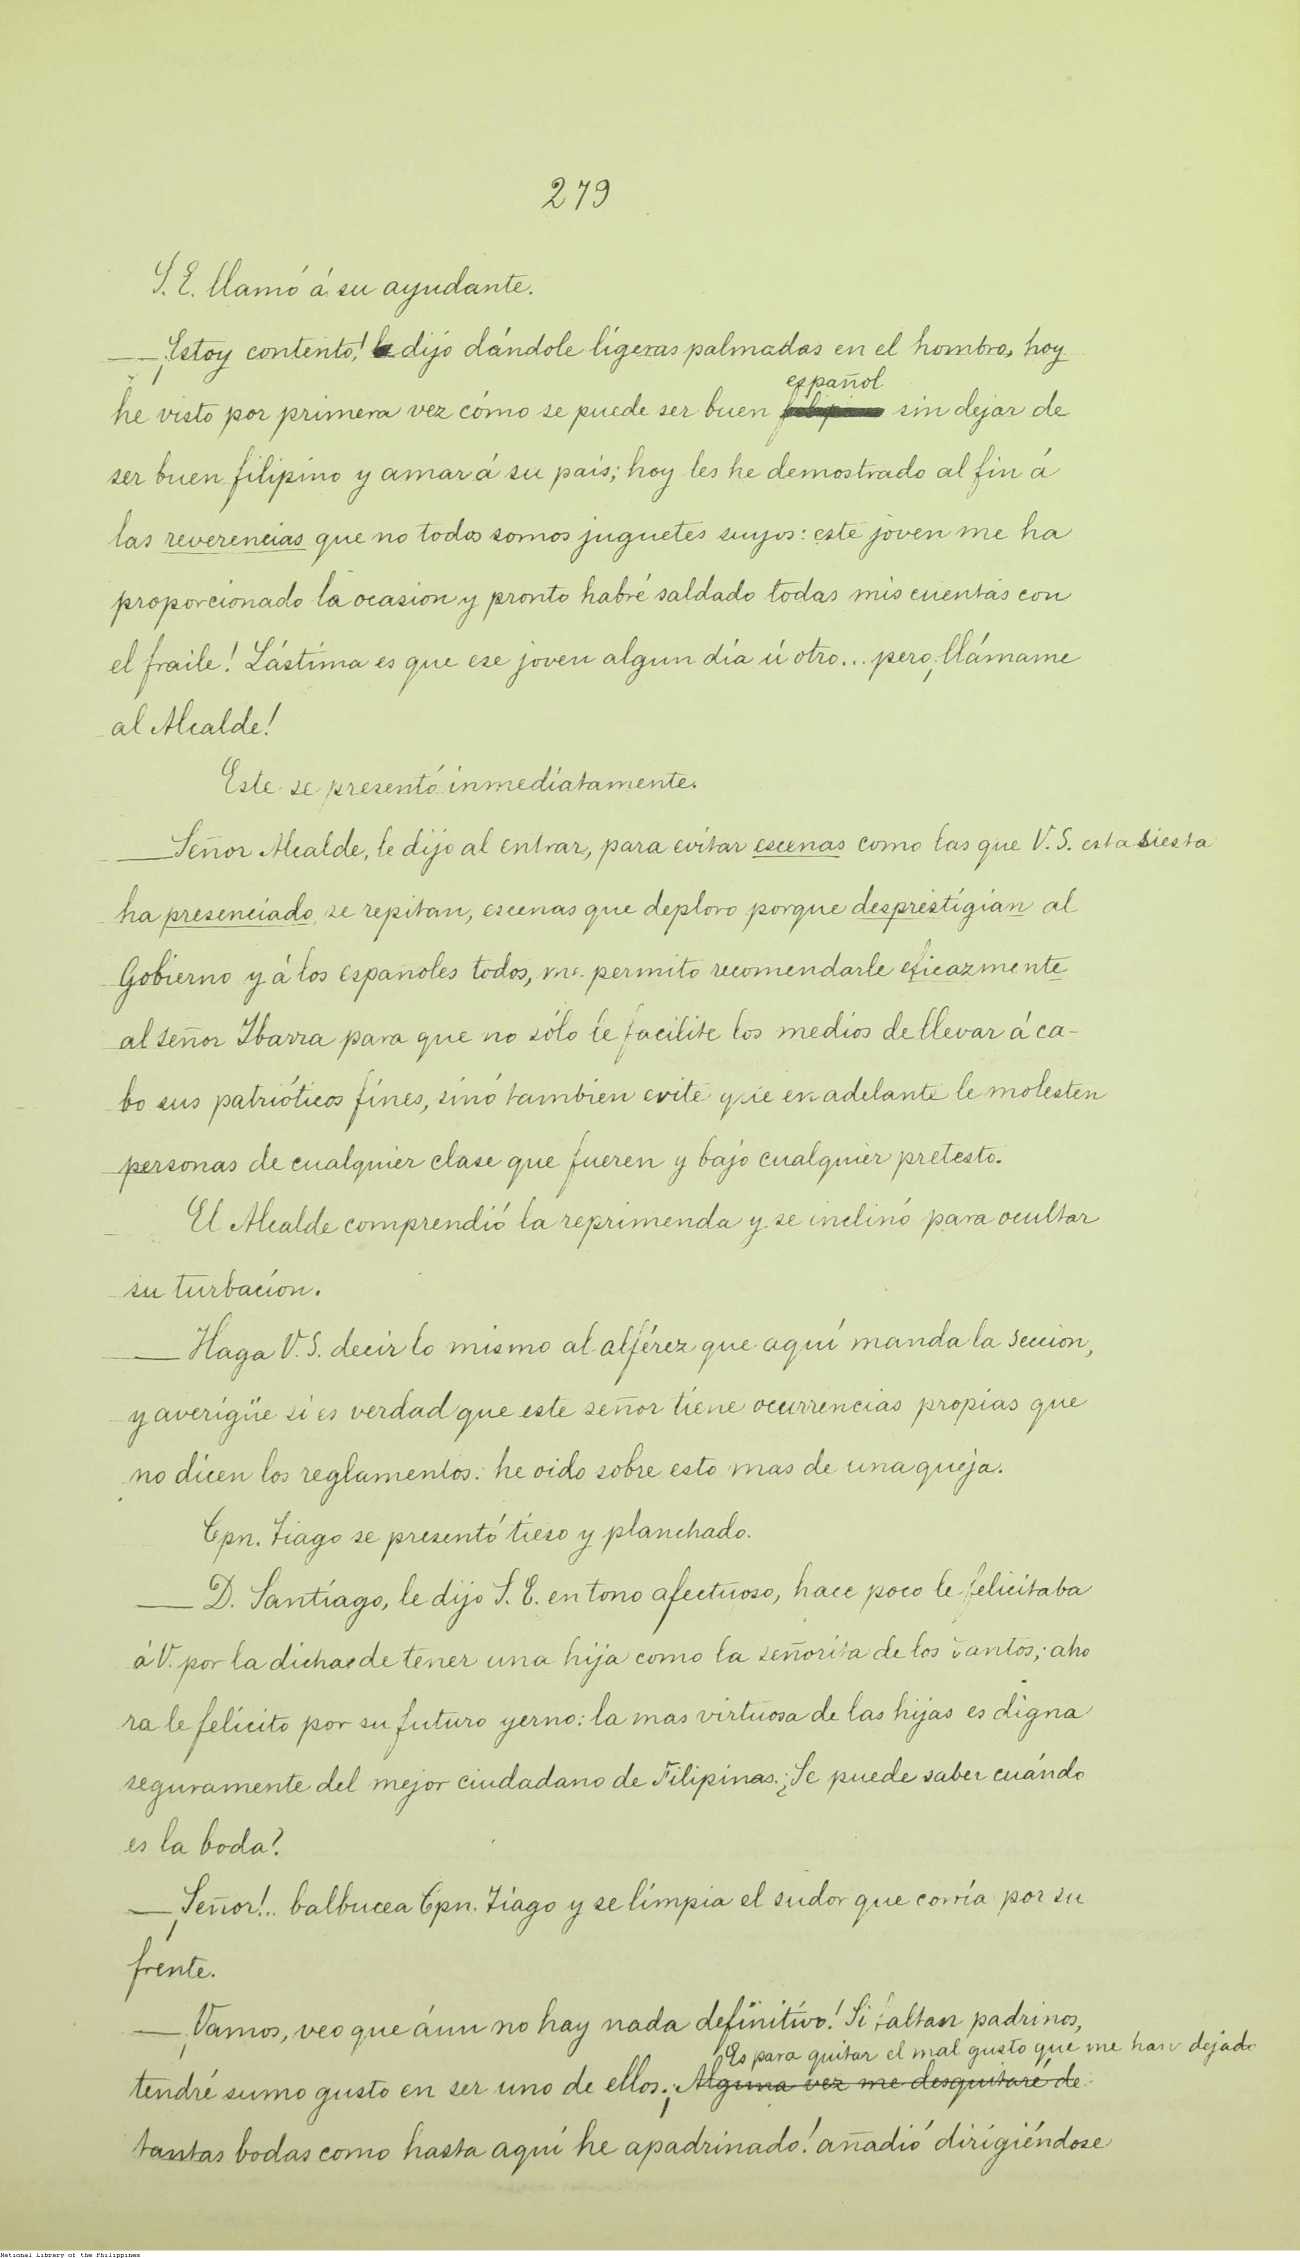 279
S. E. llamó á su ayudante.
— ¡Estoy contento! le dijo dándole lígeras palmadas en el hombro, hoy
español
he visto por primera vez cómo se puede ser buen filipino sin dejar de
ser buen filipino y amar á su pais; hoy les he demostrado al fin á
las reverencias que no todos somos juguetes suyos: este joven me ha
proporcionado la ocasion y pronto habré saldado todas mis cuentas con
el fraile! Lástima es que ese joven algun día ú otro... pero, llámame
al Alcalde!
Este se presentó inmediatamente.
— Señor Alcalde, le dijo al entrar, para evitar escenas como las que V. S. esta siesta
ha presenciado se repitan, escenas que deploro porque desprestigian al
Gobierno y á los españoles todos, me permito recomendarle eficazmente
al señor Ibarra para que no sólo le facilite los medios de llevar á ca-
bo sus patrióticos fines, sinó tambien evite que en adelante le molesten
personas de cualquier clase que fueren y bajo cualquier pretesto.
El Alcalde comprendió la reprimenda y se inclinó para ocultar
su turbacion.
— Haga V. S. decir lo mismo al alférez que aquí manda la seccion,
y averigüe si es verdad que este señor tiene ocurrencias propias que
no dicen los reglamentos: he oido sobre esto mas de una queja.
Cpn. Tiago se presentó tieso y planchado.
— D. Santiago, le dijo S. E. en tono afectuoso, hace poco le felicitaba
á V. por la dicha de tener una hija como la señorita de los Santos; aho
ra le felicito por su futuro yerno: la mas virtuosa de las hijas es digna
seguramente del mejor ciudadano de Filipinas. ¿Se puede saber cuándo
es la boda?
— ¡Señor!.. balbucea Cpn. Tiago y se limpia el sudor que corría por su
frente.
— ¡Vamos, veo que áun no hay nada definitivo! Si faltan padrinos,
Es para quitar el mal gusto que me han dejado
tendré sumo gusto en ser uno de ellos. ¡Alguna vez me desquitaré de
tantas bodas como hasta aquí he apadrinado! añadió dirigiéndose
National Library of the Philippines